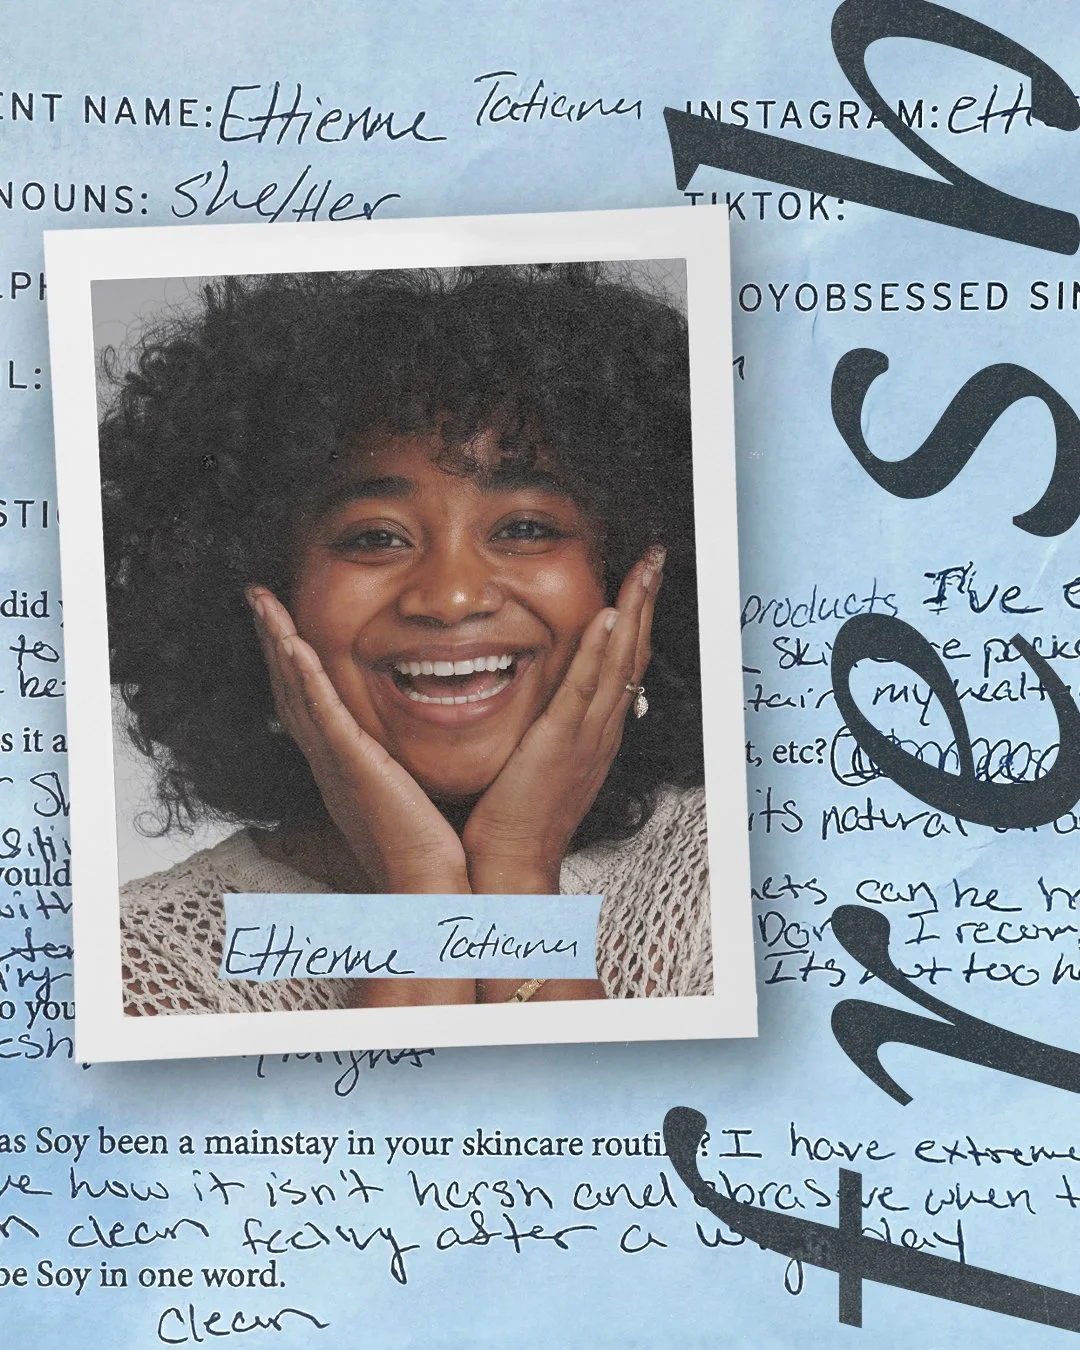 ENT NAME: Ettienne Tatiana INSTAGRAM: etti
NOUNS: She/Her TIKTOK:
LPH OYOBSESSED SIN
L:
STI
did products I've e
to Skincare packa
be tain my health
s it a t, etc?
its natural
would ets can be h
with Don I recom
Its not too h
o you
esh
Ettienne Tatiana
as Soy been a mainstay in your skincare routine? I have extreme
ve how it isn't harsh and abrasive when t
n clean feeling after a whole day
be Soy in one word.
Clean
fresh